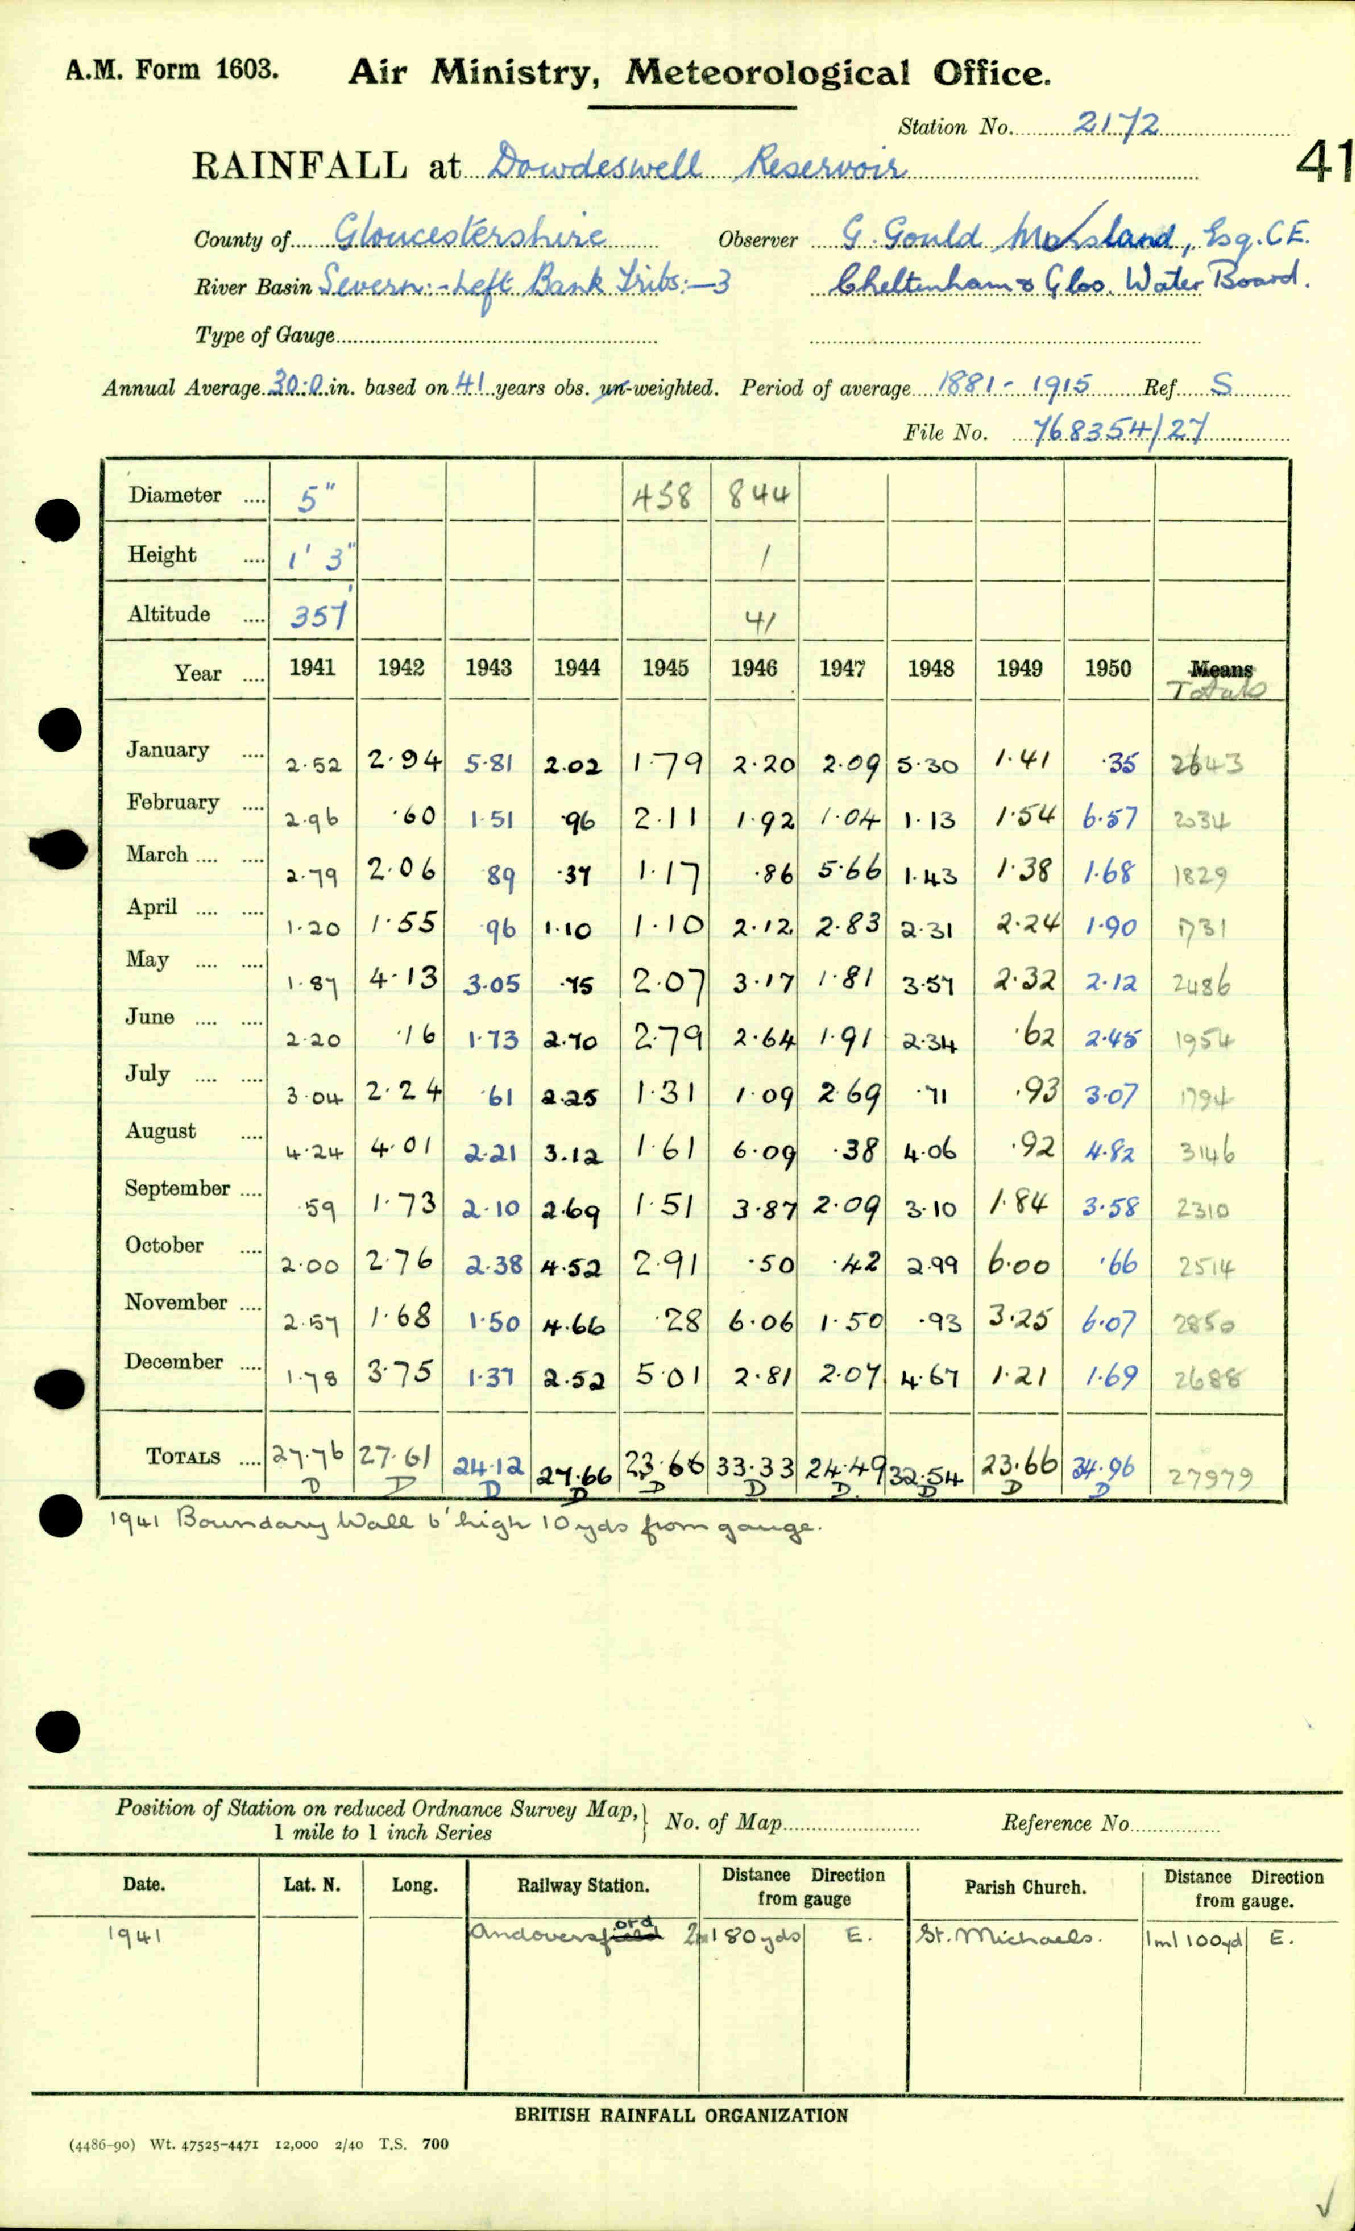 A.M. Form 1603. Air Ministry, Meteorological Office.
Station No. 2172
RAINFALL at Dowdeswell Reservoir 41
County of Gloucestershire Observer G. Gould Marsland, Esq. C.E.
River Basin Severn:- Left Bank Tribs:-3 Cheltenham & Glos. Water Board.
Type of Gauge
Annual Average 30.0 in. based on 41 years obs. un-weighted. Period of average 1881-1915 Ref. S
File No. 768354/27
Diameter .... 5" 458 844
Height .... 1' 3" 1
Altitude .... 357' 41
Year .... 1941 1942 1943 1944 1945 1946 1947 1948 1949 1950 Means
Totals
January .... 2.52 2.94 5.81 2.02 1.79 2.20 2.09 5.30 1.41 .35 2643
February .... 2.96 .60 1.51 .96 2.11 1.92 1.04 1.13 1.54 6.57 2034
March .... .... 2.79 2.06 89 .37 1.17 .86 5.66 1.43 1.38 1.68 1829
April .... .... 1.20 1.55 .96 1.10 1.10 2.12 2.83 2.31 2.24 1.90 1731
May .... .... 1.87 4.13 3.05 .75 2.07 3.17 1.81 3.57 2.32 2.12 2486
June .... .... 2.20 .16 1.73 2.70 2.79 2.64 1.91 2.34 .62 2.45 1954
July .... .... 3.04 2.24 .61 2.25 1.31 1.09 2.69 .71 .93 3.07 1794
August .... 4.24 4.01 2.21 3.12 1.61 6.09 .38 4.06 .92 4.82 3146
September .... .59 1.73 2.10 2.69 1.51 3.87 2.09 3.10 1.84 3.58 2310
October .... 2.00 2.76 2.38 4.52 2.91 .50 .42 2.99 6.00 .66 2514
November .... 2.57 1.68 1.50 4.66 .28 6.06 1.50 .93 3.25 6.07 2850
December .... 1.78 3.75 1.37 2.52 5.01 2.81 2.07 4.67 1.21 1.69 2688
TOTALS .... 27.76 27.61 24.12 27.66 23.66 33.33 24.49 32.54 23.66 34.96 27979
D D D D D D D D D D
1941 Boundary Wall 6' high 10 yds from gauge.
Position of Station on reduced Ordnance Survey Map, No. of Map Reference No.
1 mile to 1 inch Series
Date. Lat. N. Long. Railway Station. Distance Direction from gauge Parish Church. Distance Direction from gauge.
1941 Andoversford 2m 180yds E. St. Michaels. 1ml 100yd E.
BRITISH RAINFALL ORGANIZATION
(4486-90) Wt. 47525-4471 12,000 2/40 T.S. 700